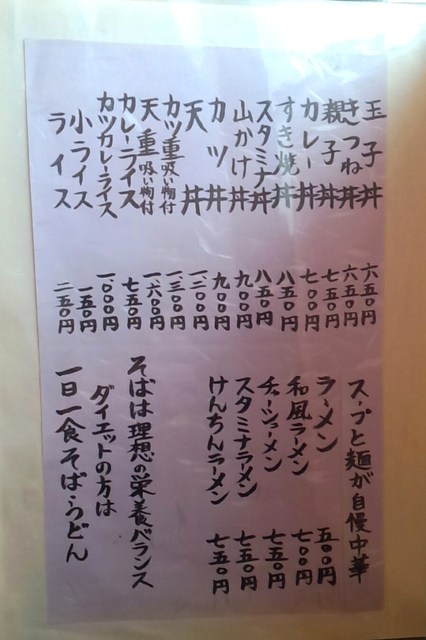 玉子丼 六五〇円
きつね丼 六五〇円
親子丼 七五〇円
カレー丼 七〇〇円
すき焼丼 八五〇円
スタミナ丼 八五〇円
山かけ丼 九〇〇円
カツ丼 九〇〇円
天丼 一二〇〇円
カツ重吸い物付 一三〇〇円
天重吸い物付 一六〇〇円
カレーライス 七五〇円
カツカレーライス 一〇〇〇円
小ライス 一五〇円
ライス 二五〇円
スープと麺が自慢中華
ラーメン 五〇〇円
和風ラーメン 七〇〇円
チャーシューメン 七五〇円
スタミナラーメン 七五〇円
けんちんラーメン 七五〇円
そばは理想の栄養バランス
ダイエットの方は
一日一食そば・うどん